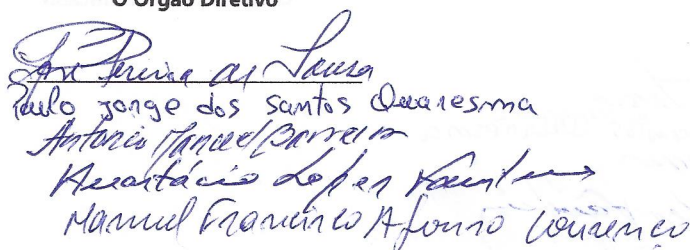 O Órgão Diretivo
José Pereira de Sousa
Paulo Jorge dos Santos Quaresma
António Manuel Barreira
Anastácio Lopes
Manuel Francisco Afonso Lourenço